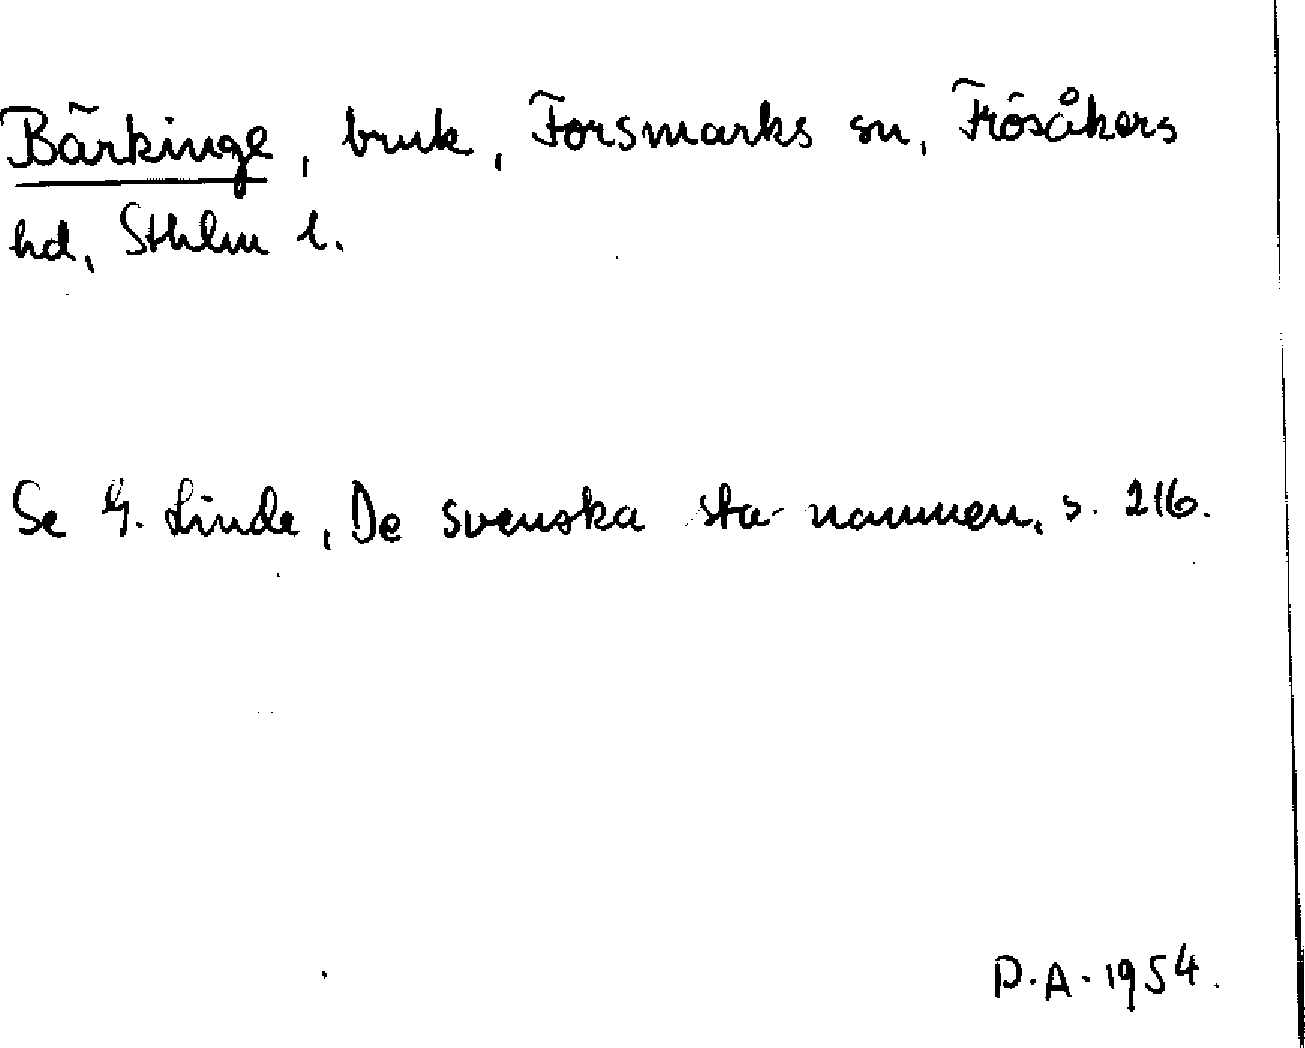 Bärkinge, bruk, Forsmarks sn, Frösåkers
hd, Sthlm l.
Se G. Linde, De svenska sta-namnen, s. 216.
P.A. 1954.